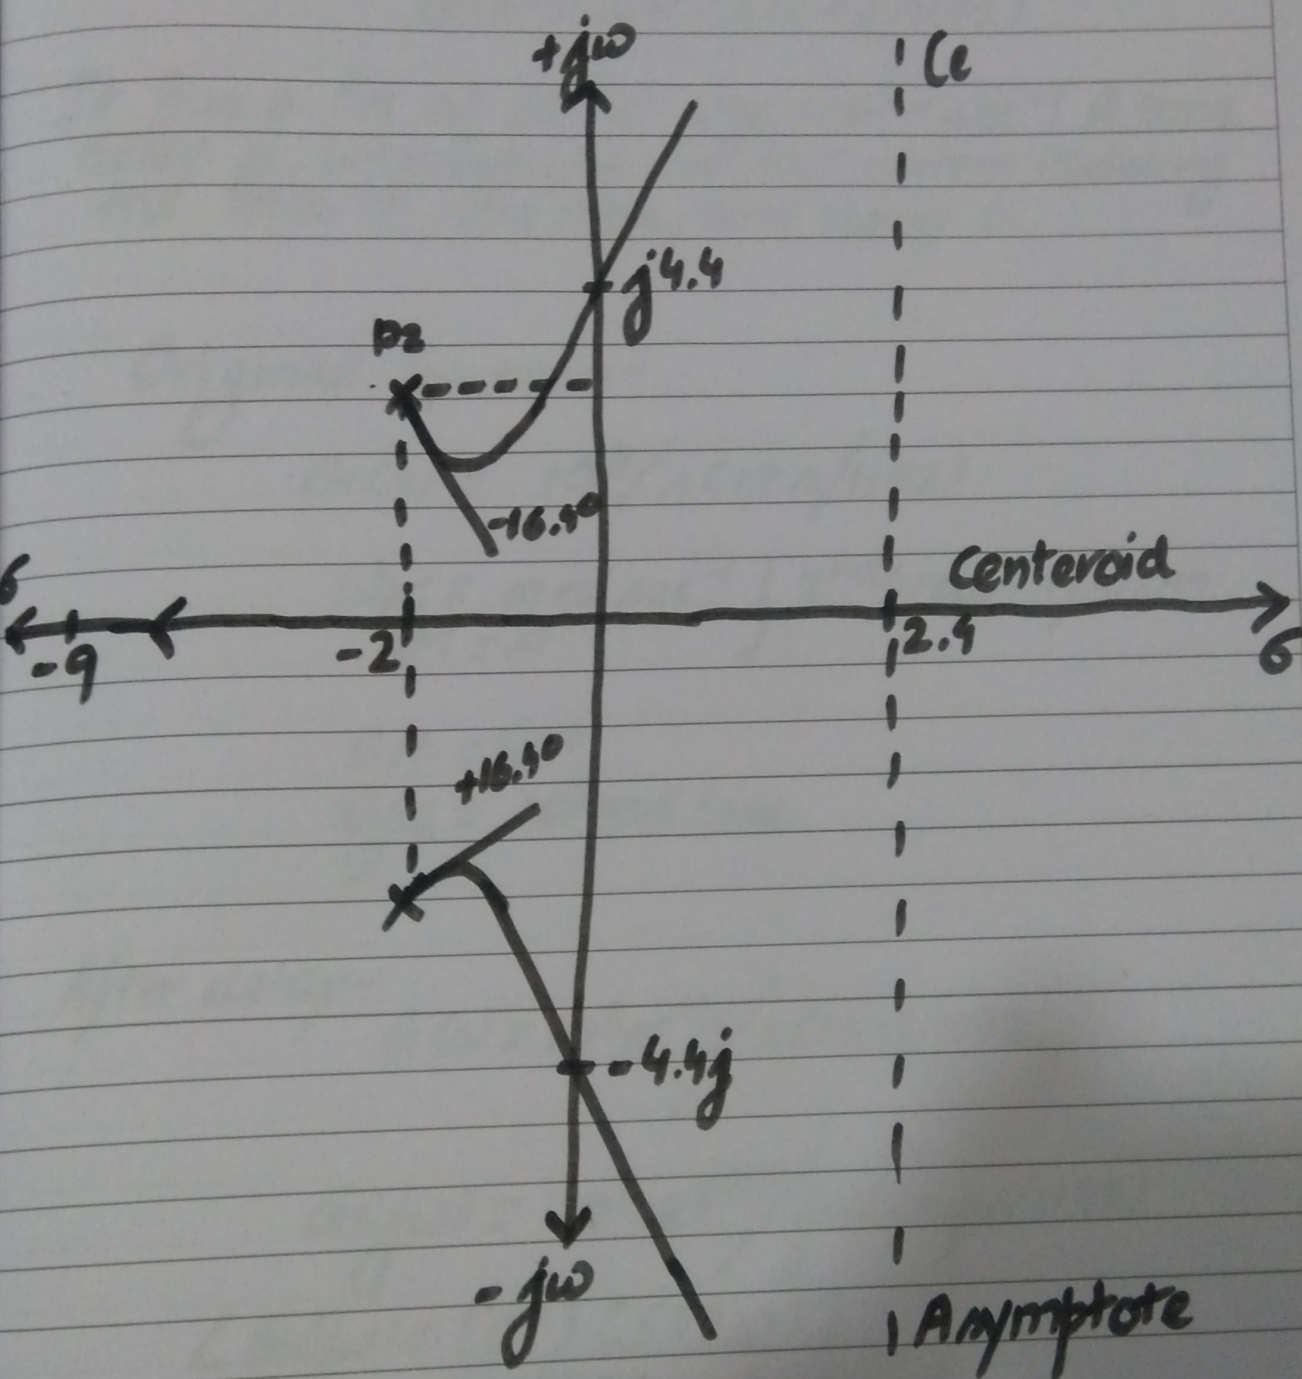 +jω
Ce
j4.4
P2
-16.4°
Centeroid
σ
-9
-2
2.4
σ
+16.4°
-4.4j
-jω
Asymptote